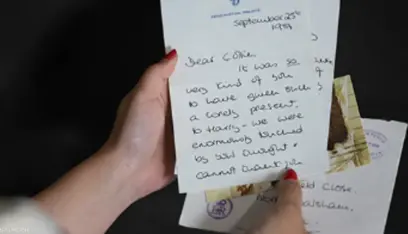 September 25th
1984
Dear Cyttie.
It was so
very kind of you
to have given such
a lovely present
to Harry - we were
enormously touched
by your thought &
cannot thank you
Close.
Walsham.